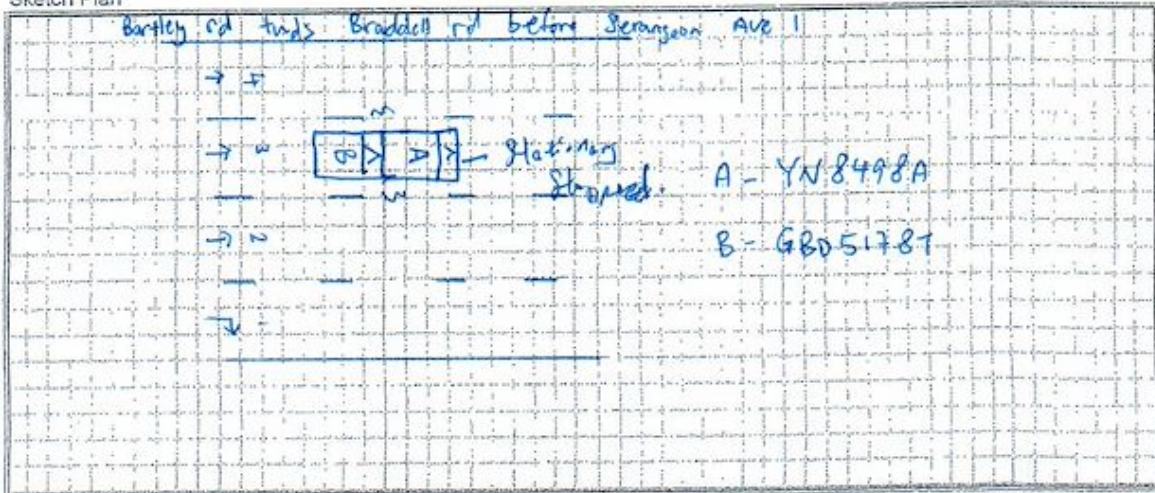 Sketch Plan
Bartley rd twds Braddell rd before Serangoon AVE 1
4
3 B A Stationary
Stopped.
A - YN8498A
2
B - GBD5178T
1